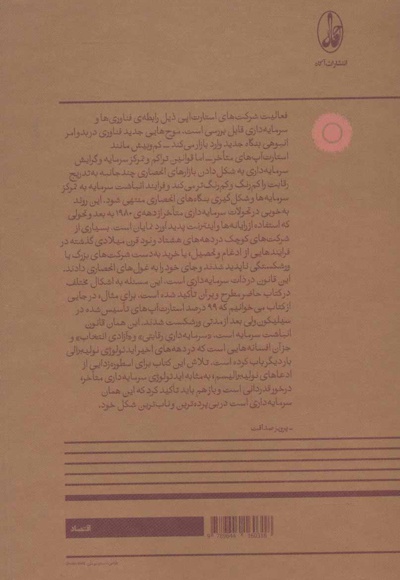 انتشارات آگاه
فعالیت شرکت‌های استارت‌آپی ذیل رابطه‌ی فناوری‌ها و
سرمایه‌داری قابل بررسی است. موج‌هایی جدید فناوری در بدو امر
انبوهی بنگاه جدید وارد بازار می‌کند ــ کم‌وبیش مانند
استارت‌آپ‌های متأخر ــ اما قوانین تراکم و تمرکز سرمایه و گرایش
سرمایه‌داری به شکل دادن بازارهای انحصاری چندجانبه به‌تدریج
رقابت را کم‌رنگ و کم‌رنگ‌تر می‌کند و فرایند انباشت سرمایه به تمرکز
سرمایه‌ها و شکل‌گیری بنگاه‌های انحصاری منتهی شود. این روند
به‌خوبی در تحولات سرمایه‌داری متأخر از دهه‌ی ۱۹۸۰ به بعد و تحولی
که استفاده از رایانه‌ها و اینترنت پدید آورد نمایان است. بسیاری از
شرکت‌های کوچک در دهه‌های هشتاد و نود قرن میلادی گذشته در
فرایندهایی از ادغام و تحصیل، یا خرید به‌دست شرکت‌های بزرگ یا
ورشکستگی ناپدید شدند و جای خود را به غول‌های انحصاری دادند.
این قانون در ذات سرمایه‌داری است. این مسئله به اشکال مختلف
در کتاب حاضر مطرح و بر آن تأکید شده است. برای مثال، در جایی
از کتاب می‌خوانیم که ۹۹ درصد استارت‌آپ‌های تأسیس شده در
سیلیکون‌ولی بعد از مدتی ورشکست شدند. این همان قانون
انباشت سرمایه است. «سرمایه‌داری رقابتی» و «آزادی انتخاب» و
جز آن افسانه‌هایی است که در دهه‌های اخیر ایدئولوژی نولیبرالی
بار دیگر باب کرده است. تلاش این کتاب برای اسطوره‌زدایی از
ادعاهای نولیبرالیسم، به مثابه ایدئولوژی سرمایه‌داری متأخر،
درخور قدردانی است و باز هم باید تأکید کرد که این همان
سرمایه‌داری است در بی‌پرده‌ترین و ناب‌ترین شکل خود.
ــ پرویز صداقت
اقتصاد